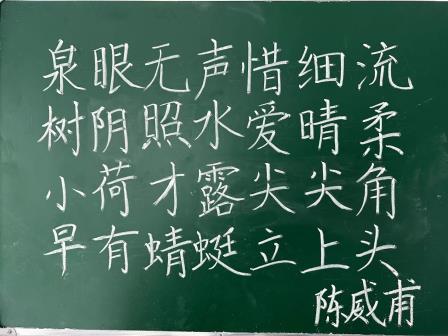 泉眼无声惜细流
树阴照水爱晴柔
小荷才露尖尖角
早有蜻蜓立上头
陈威甫